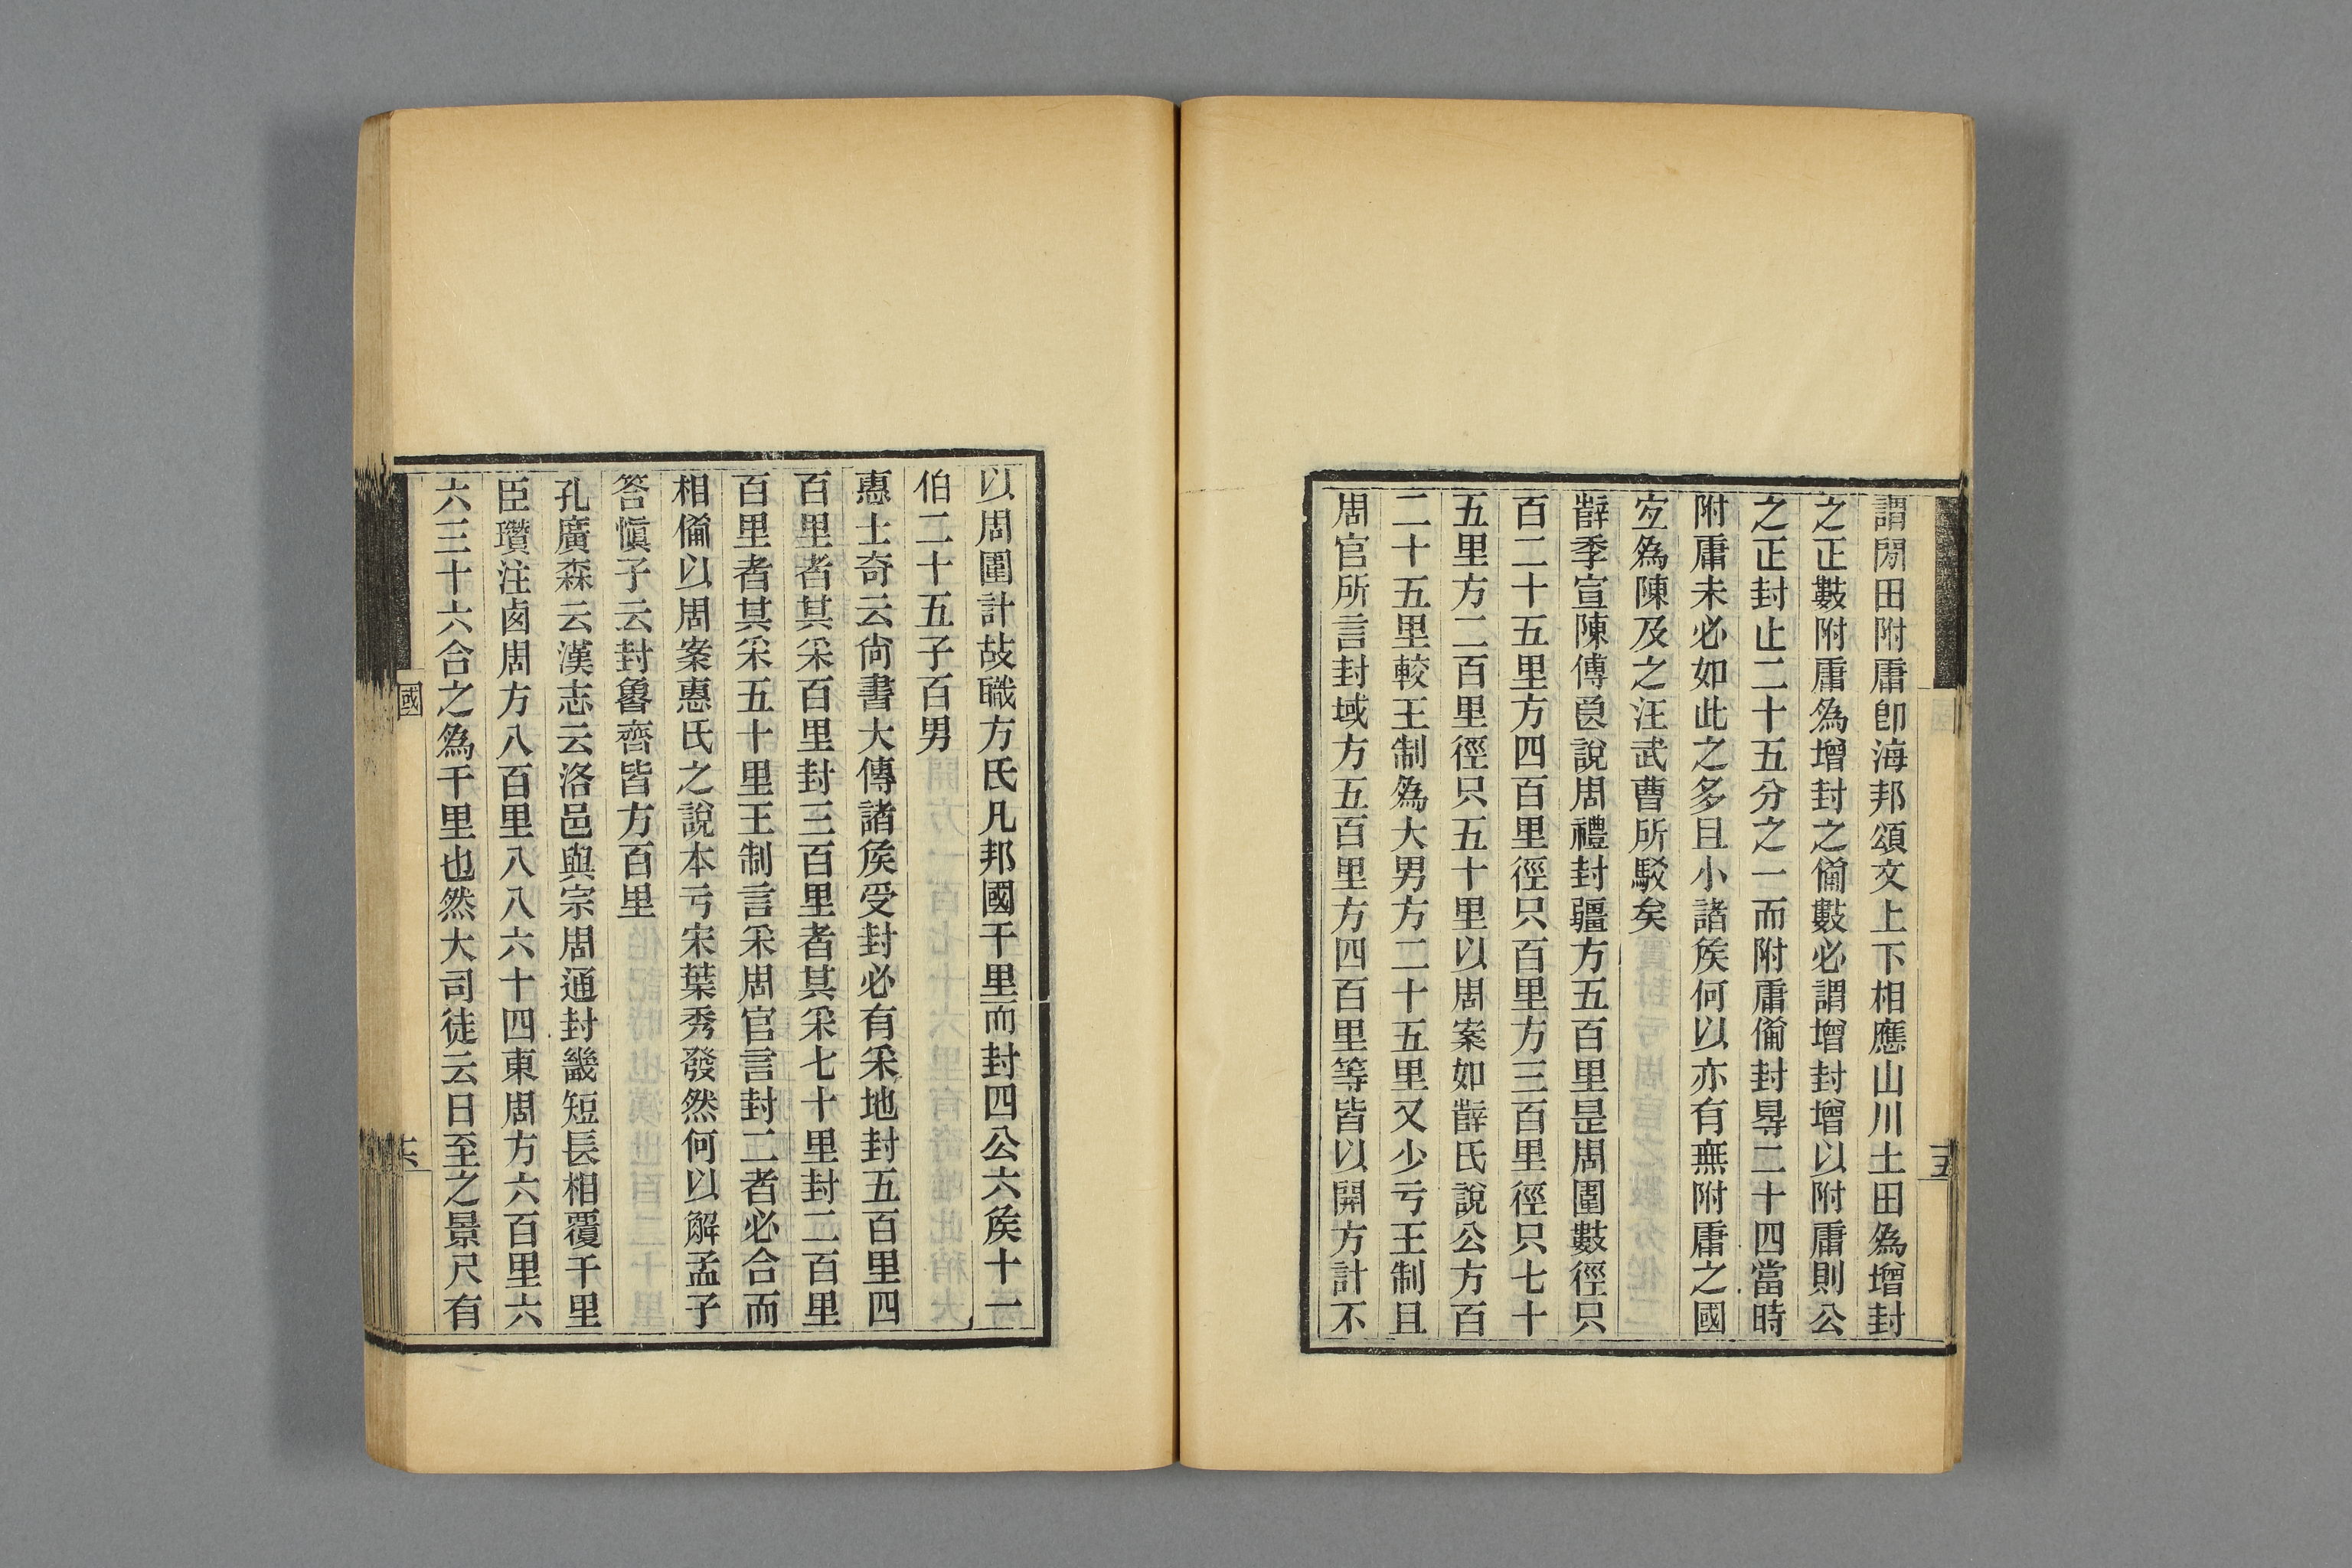 謂閒田附庸卽海邦頌文上下相應山川土田爲增封
之正數附庸爲增封之僃數必謂增封增以附庸則公
之正封止二十五分之一而附庸僃封㝵二十四當時
附庸未必如此之多且小諸矦何以亦有無附庸之國
宐爲陳及之汪武曹所駁矣
辥季宣陳傅良說周禮封疆方五百里是周圍數徑只
百二十五里方四百里徑只百里方三百里徑只七十
五里方二百里徑只五十里以周案如辥氏說公方百
二十五里較王制爲大男方二十五里又少亏王制且
周官所言封域方五百里方四百里等皆以開方計不
五
以周圍計故職方氏凡邦國千里而封四公六矦十一
伯二十五子百男
惠士奇云尙書大傳諸矦受封必有采地封五百里四
百里者其采百里封三百里者其采七十里封二百里
百里者其采五十里王制言采周官言封二者必合而
相僃以周案惠氏之說本亏宋葉秀發然何以解孟子
答愼子云封魯齊皆方百里
孔廣森云漢志云洛邑與宗周通封畿短長相覆千里
臣瓚注鹵周方八百里八八六十四東周方六百里六
六三十六合之爲千里也然大司徒云日至之景尺有
國
六